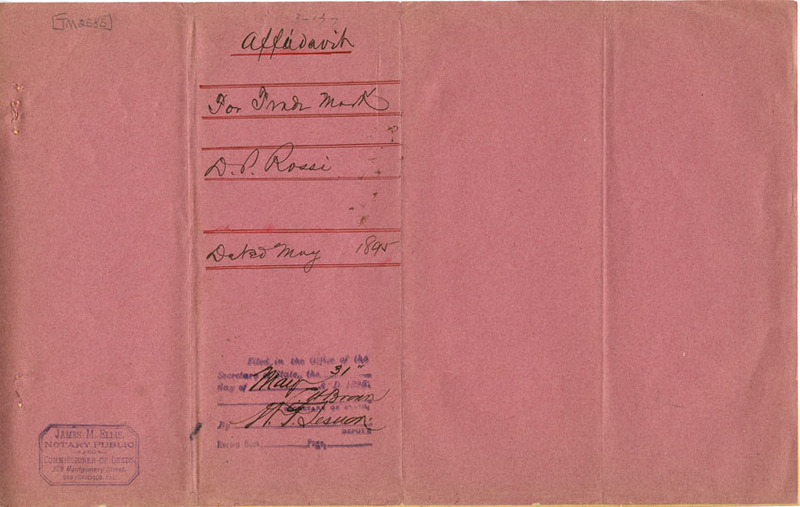 [TM2535]
Affidavit
For Trade Mark
D. P. Rossi
Dated May 1895
Filed in the Office of the
Secretary of State, the 31"
day of May A.D. 1895
Brown
SECRETARY OF STATE
By
DEPUTY
Record Book Page
JAMES M. ELLIS,
NOTARY PUBLIC
AND
COMMISSIONER OF DEEDS,
Montgomery Street,
SAN FRANCISCO, CAL.